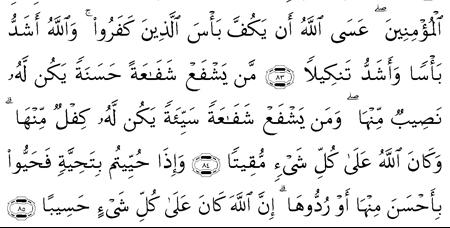 ٱلۡمُؤۡمِنِينَۖ عَسَى ٱللَّهُ أَن يَكُفَّ بَأۡسَ ٱلَّذِينَ كَفَرُواْۚ وَٱللَّهُ أَشَدُّ
بَأۡسٗا وَأَشَدُّ تَنكِيلٗا ٨٣ مَّن يَشۡفَعۡ شَفَٰعَةً حَسَنَةٗ يَكُن لَّهُۥ
نَصِيبٞ مِّنۡهَاۖ وَمَن يَشۡفَعۡ شَفَٰعَةٗ سَيِّئَةٗ يَكُن لَّهُۥ كِفۡلٞ مِّنۡهَاۗ
وَكَانَ ٱللَّهُ عَلَىٰ كُلِّ شَيۡءٖ مُّقِيتٗا ٨٤ وَإِذَا حُيِّيتُم بِتَحِيَّةٖ فَحَيُّواْ
بِأَحۡسَنَ مِنۡهَآ أَوۡ رُدُّوهَآۗ إِنَّ ٱللَّهَ كَانَ عَلَىٰ كُلِّ شَيۡءٍ حَسِيبًا ٨٥